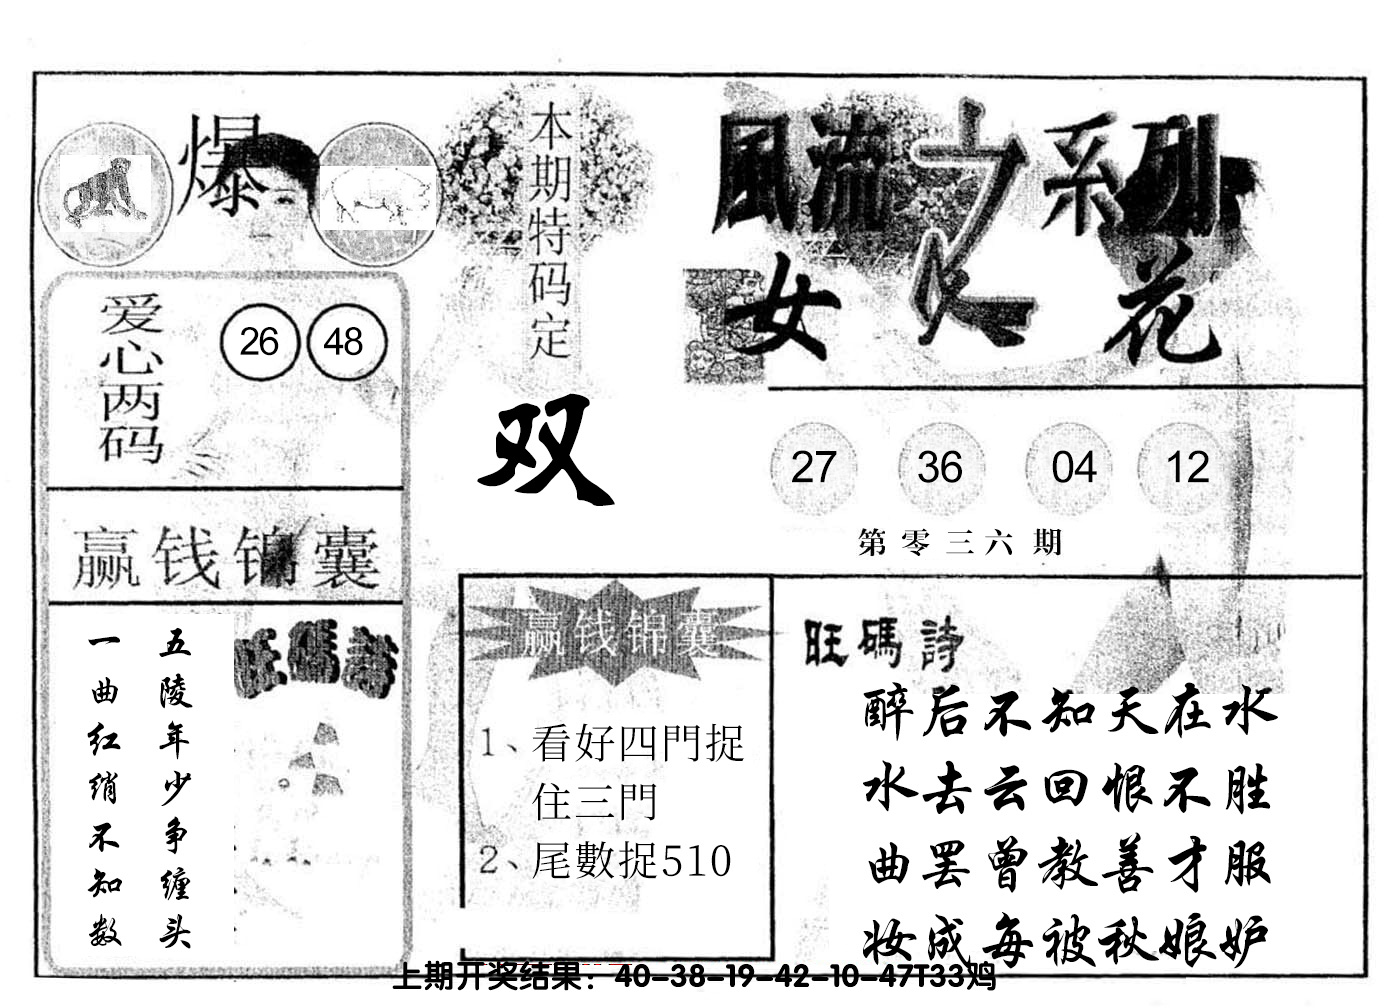 爆
本期特码定
双
風流之系列
女人花
爱心两码
26 48
27 36 04 12
第零三六期
赢钱锦囊
旺碼詩
五陵年少争缠头
一曲红绡不知数
赢钱锦囊
1、看好四門捉
住三門
2、尾數捉510
旺碼詩
醉后不知天在水
水去云回恨不胜
曲罢曾教善才服
妆成每被秋娘妒
上期开奖结果：40-38-19-42-10-47T33鸡